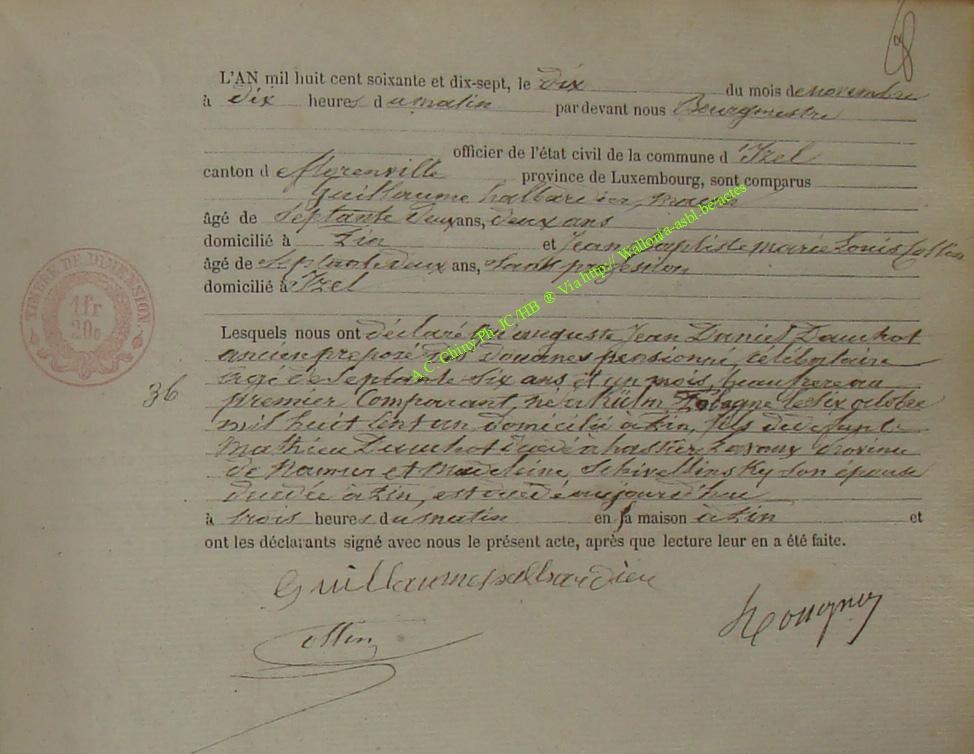 L'AN mil huit cent soixante et dix-sept, le dix du mois de novembre
à dix heures du matin par devant nous Bourgmestre
officier de l'état civil de la commune d'Izel
canton de Florenville province de Luxembourg, sont comparus
Guillaume halbardier,
âgé de Septante deux ans,
domicilié à Zin et Jean Baptiste marie Louis Collin
âgé de Septante deux ans, Sans profession
domicilié à Izel
Lesquels nous ont déclaré que auguste Jean Daniel Dauchot
ancien preposé des douanes pensionné, celibataire
agé de Septante Six ans et un mois, beaufrere au
premier Comparant, né à Kulm, Pologne le Six octobre
mil huit Cent un, domicilié à Zin, fils de défunt
Mathieu Dauchot décédé à hastier Lavaux Province
de Namur et Madeleine Schivellinsky son épouse
décédée à Zin, est décédé aujourd'hui
à trois heures du matin en sa maison à Zin et
ont les déclarants signé avec nous le présent acte, après que lecture leur en a été faite.
Guillaume halbardier
Collin
TIMBRE DE DIMENSION
1 fr
20 c
36
A.C. Chiny Ph. JC/HB ® Via http:// Wallonia-asbl.be/actes